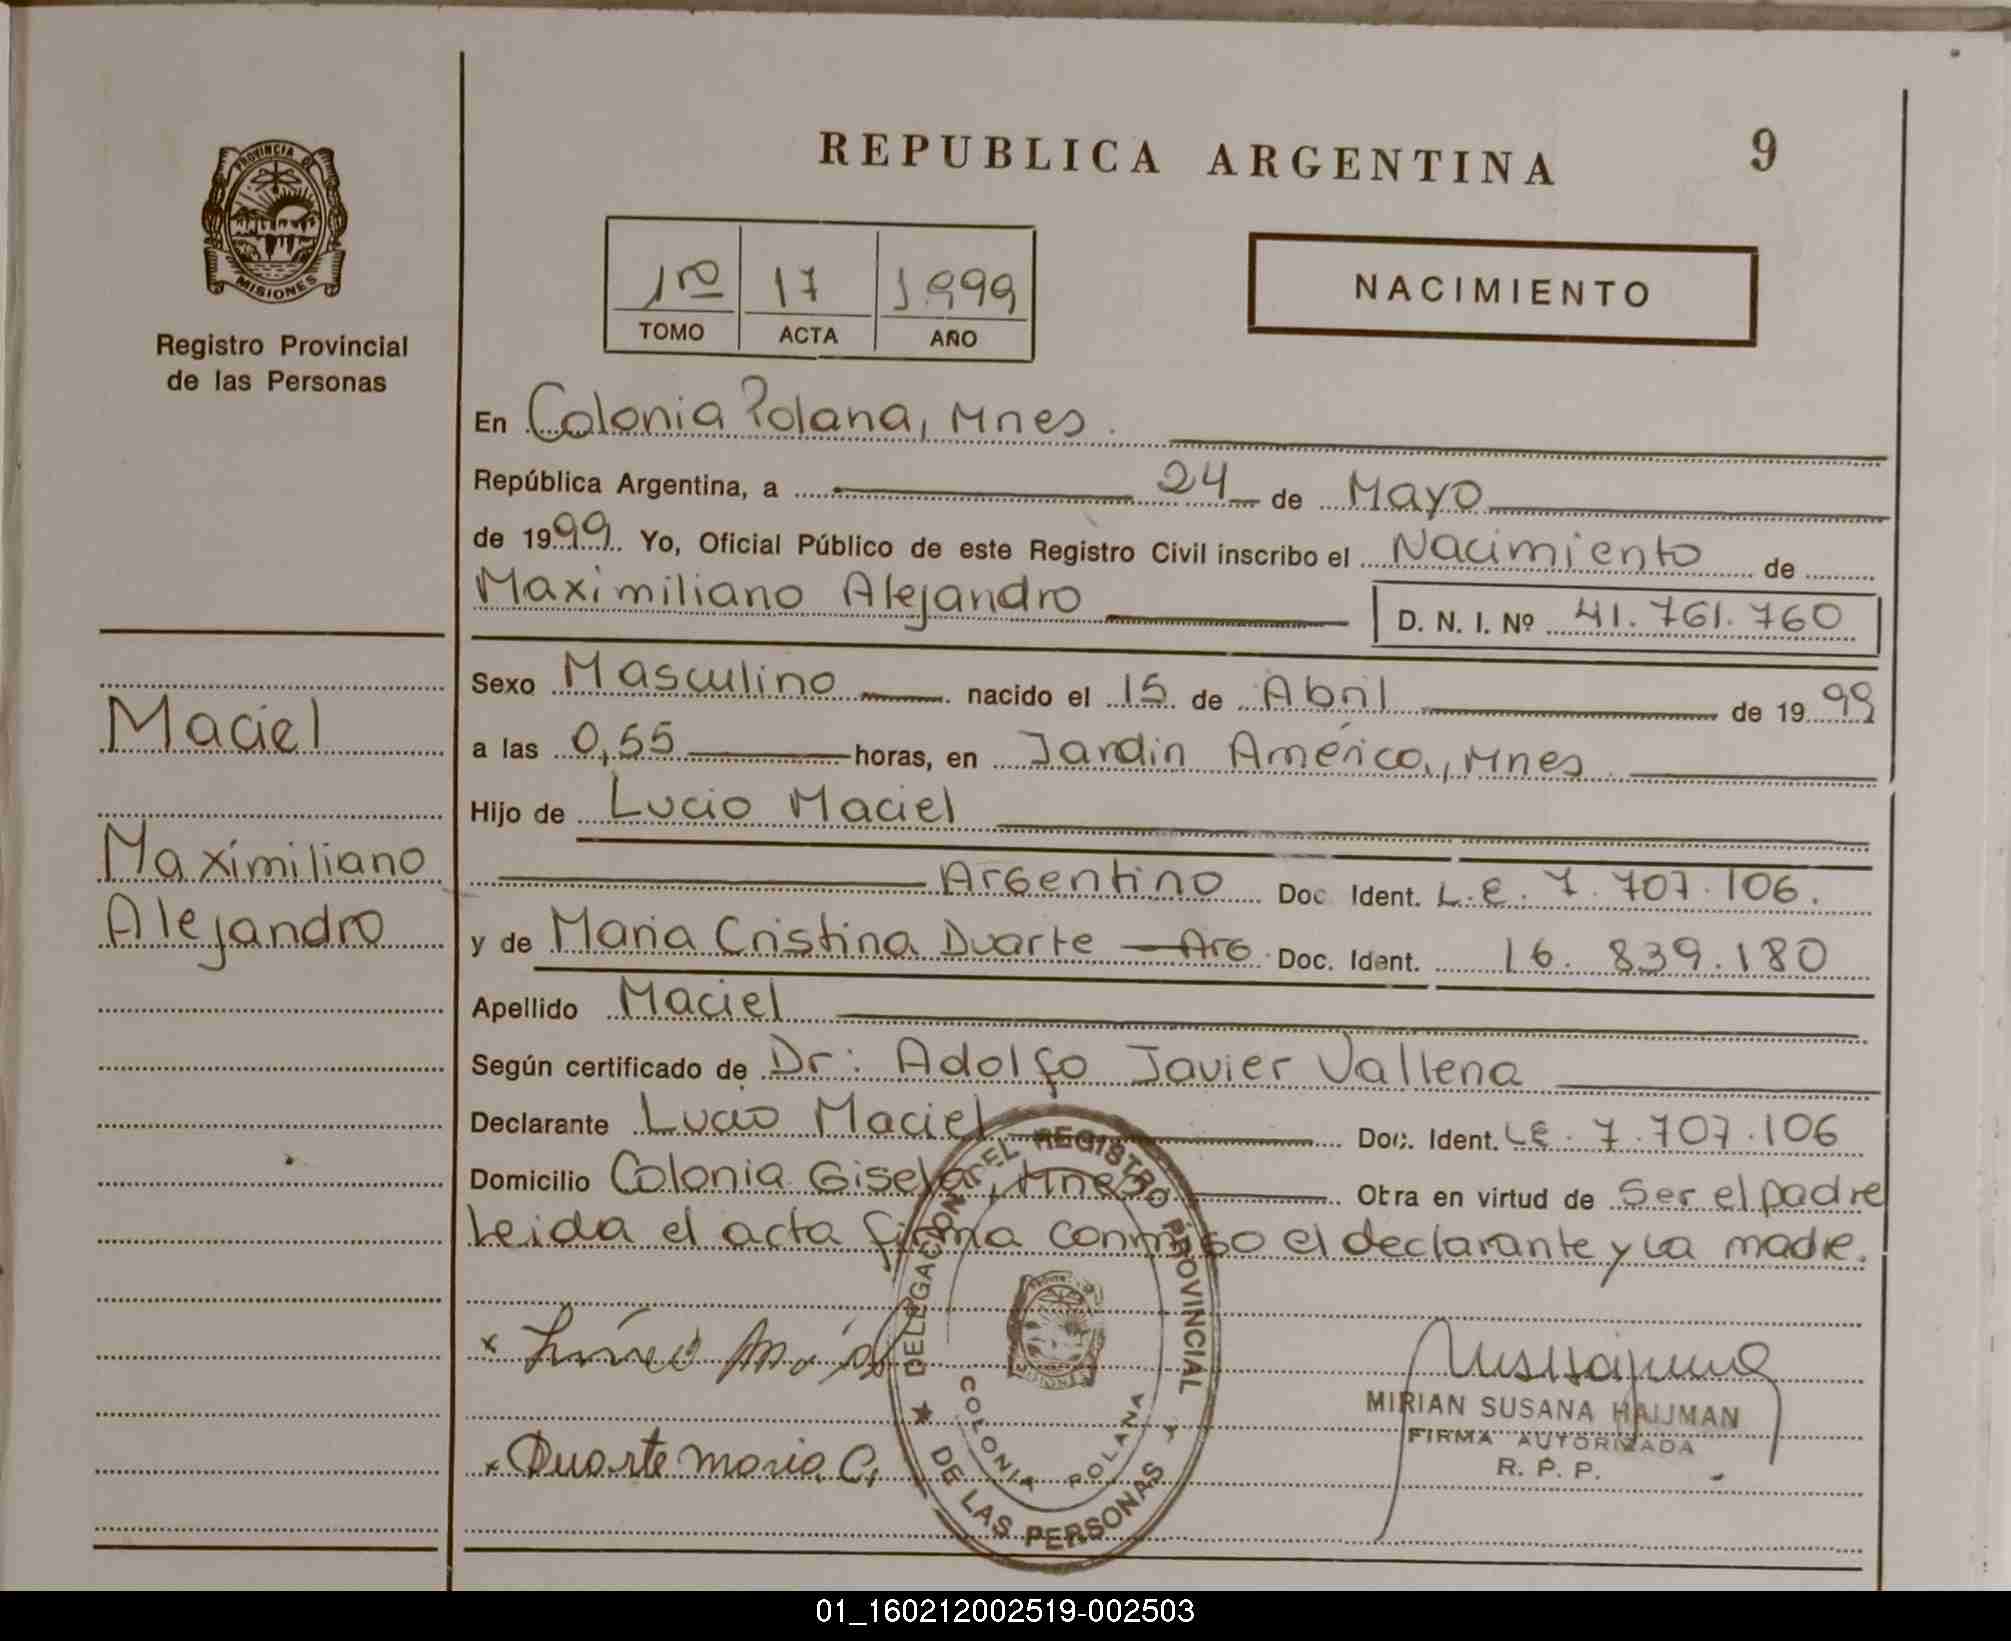 REPUBLICA ARGENTINA 9
PROVINCIA DE
MISIONES
Registro Provincial
de las Personas
1ro 17 1999
TOMO ACTA AÑO
NACIMIENTO
En Colonia Polana, Mnes.
República Argentina, a 24 de Mayo
de 1999. Yo, Oficial Público de este Registro Civil inscribo el Nacimiento de
Maximiliano Alejandro D. N. I. Nº 41.761.760
Sexo Masculino nacido el 15 de Abril de 1999
a las 0,55 horas, en Jardin América, Mnes
Hijo de Lucio Maciel
Argentino Doc. Ident. L.E. 7.707.106.
y de Maria Cristina Duarte Arg. Doc. Ident. 16.839.180
Apellido Maciel
Según certificado de Dr: Adolfo Javier Vallena
Declarante Lucio Maciel Doc. Ident. LE. 7.707.106
Domicilio Colonia Gisela, Mnes Obra en virtud de Ser el padre
Leida el acta firma conmigo el declarante y la madre.
Maciel
Maximiliano
Alejandro
DELEGACION DEL REGISTRO PROVINCIAL
DE LAS PERSONAS
COLONIA POLANA
MISIONES
x Duarte Maria C.
MIRIAN SUSANA HAIJMAN
FIRMA AUTORIZADA
R. P. P.
01_160212002519-002503